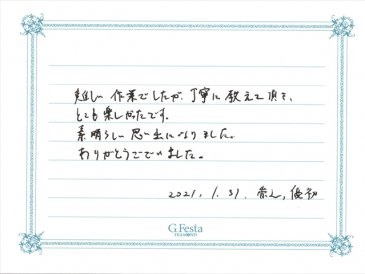 難しい作業でしたが、丁寧に教えて頂き、
とても楽しかったです。
素晴らしい思い出になりました。
ありがとうございました。
2021. 1. 31.
G.Festa
DIAMOND